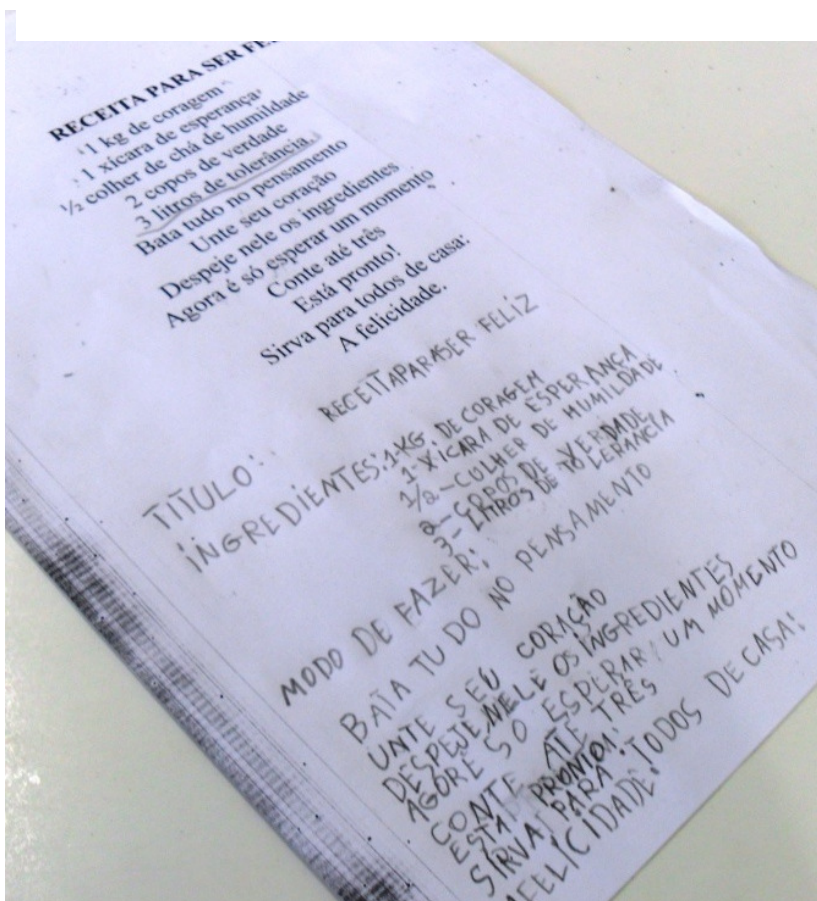 RECEITA PARA SER FEL
1 kg de coragem
1 xícara de esperança
½ colher de chá de humildade
2 copos de verdade
3 litros de tolerância
Bata tudo no pensamento
Unte seu coração
Despeje nele os ingredientes
Agora é só esperar um momento
Conte até três
Está pronto!
Sirva para todos de casa:
A felicidade.
TÍTULO: RECEITAPARASER FELIZ
INGREDIENTES: 1-KG. DE CORAGEM
1-XÍCARA DE ESPERANÇA
1/2-CULHER DE HUMILDADE
2-COPOS DE VERDADE
3-LITROS DE TOLERANCIA
MODO DE FAZER:
BATA TUDO NO PENSAMENTO
UNTE SEU CORAÇÃO
DESPEJE NELE OS INGREDIENTES
AGORE SO ESPERAR UM MOMENTO
CONTE ATE TRÊS
ESTA PRONTO!
SIRVA PARA TODOS DE CASA:
AFELICIDADE.